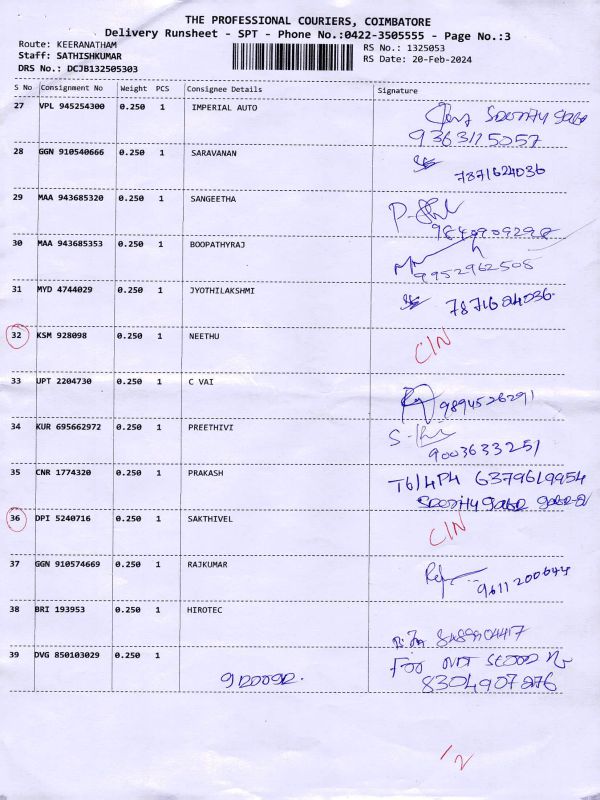 THE PROFESSIONAL COURIERS, COIMBATORE
Delivery Runsheet - SPT - Phone No.:0422-3505555 - Page No.:3
Route: KEERANATHAM
Staff: SATHISHKUMAR
DRS No.: DCJB132505303
RS No.: 1325053
RS Date: 20-Feb-2024
S No Consignment No Weight PCS Consignee Details Signature
27 VPL 945254300 0.250 1 IMPERIAL AUTO
28 GGN 910540666 0.250 1 SARAVANAN 7871624036
29 MAA 943685320 0.250 1 SANGEETHA
30 MAA 943685353 0.250 1 BOOPATHYRAJ 9952962505
31 MYD 4744029 0.250 1 JYOTHILAKSHMI 7871624036
32 KSM 928098 0.250 1 NEETHU C/N
33 UPT 2204730 0.250 1 C VAI 9894526291
34 KUR 695662972 0.250 1 PREETHIVI 9003633251
35 CNR 1774320 0.250 1 PRAKASH 6379619954
36 DPI 5240716 0.250 1 SAKTHIVEL C/N
37 GGN 910574669 0.250 1 RAJKUMAR
38 BRI 193953 0.250 1 HIROTEC 8489904417
39 DVG 850103029 0.250 1
8304907276